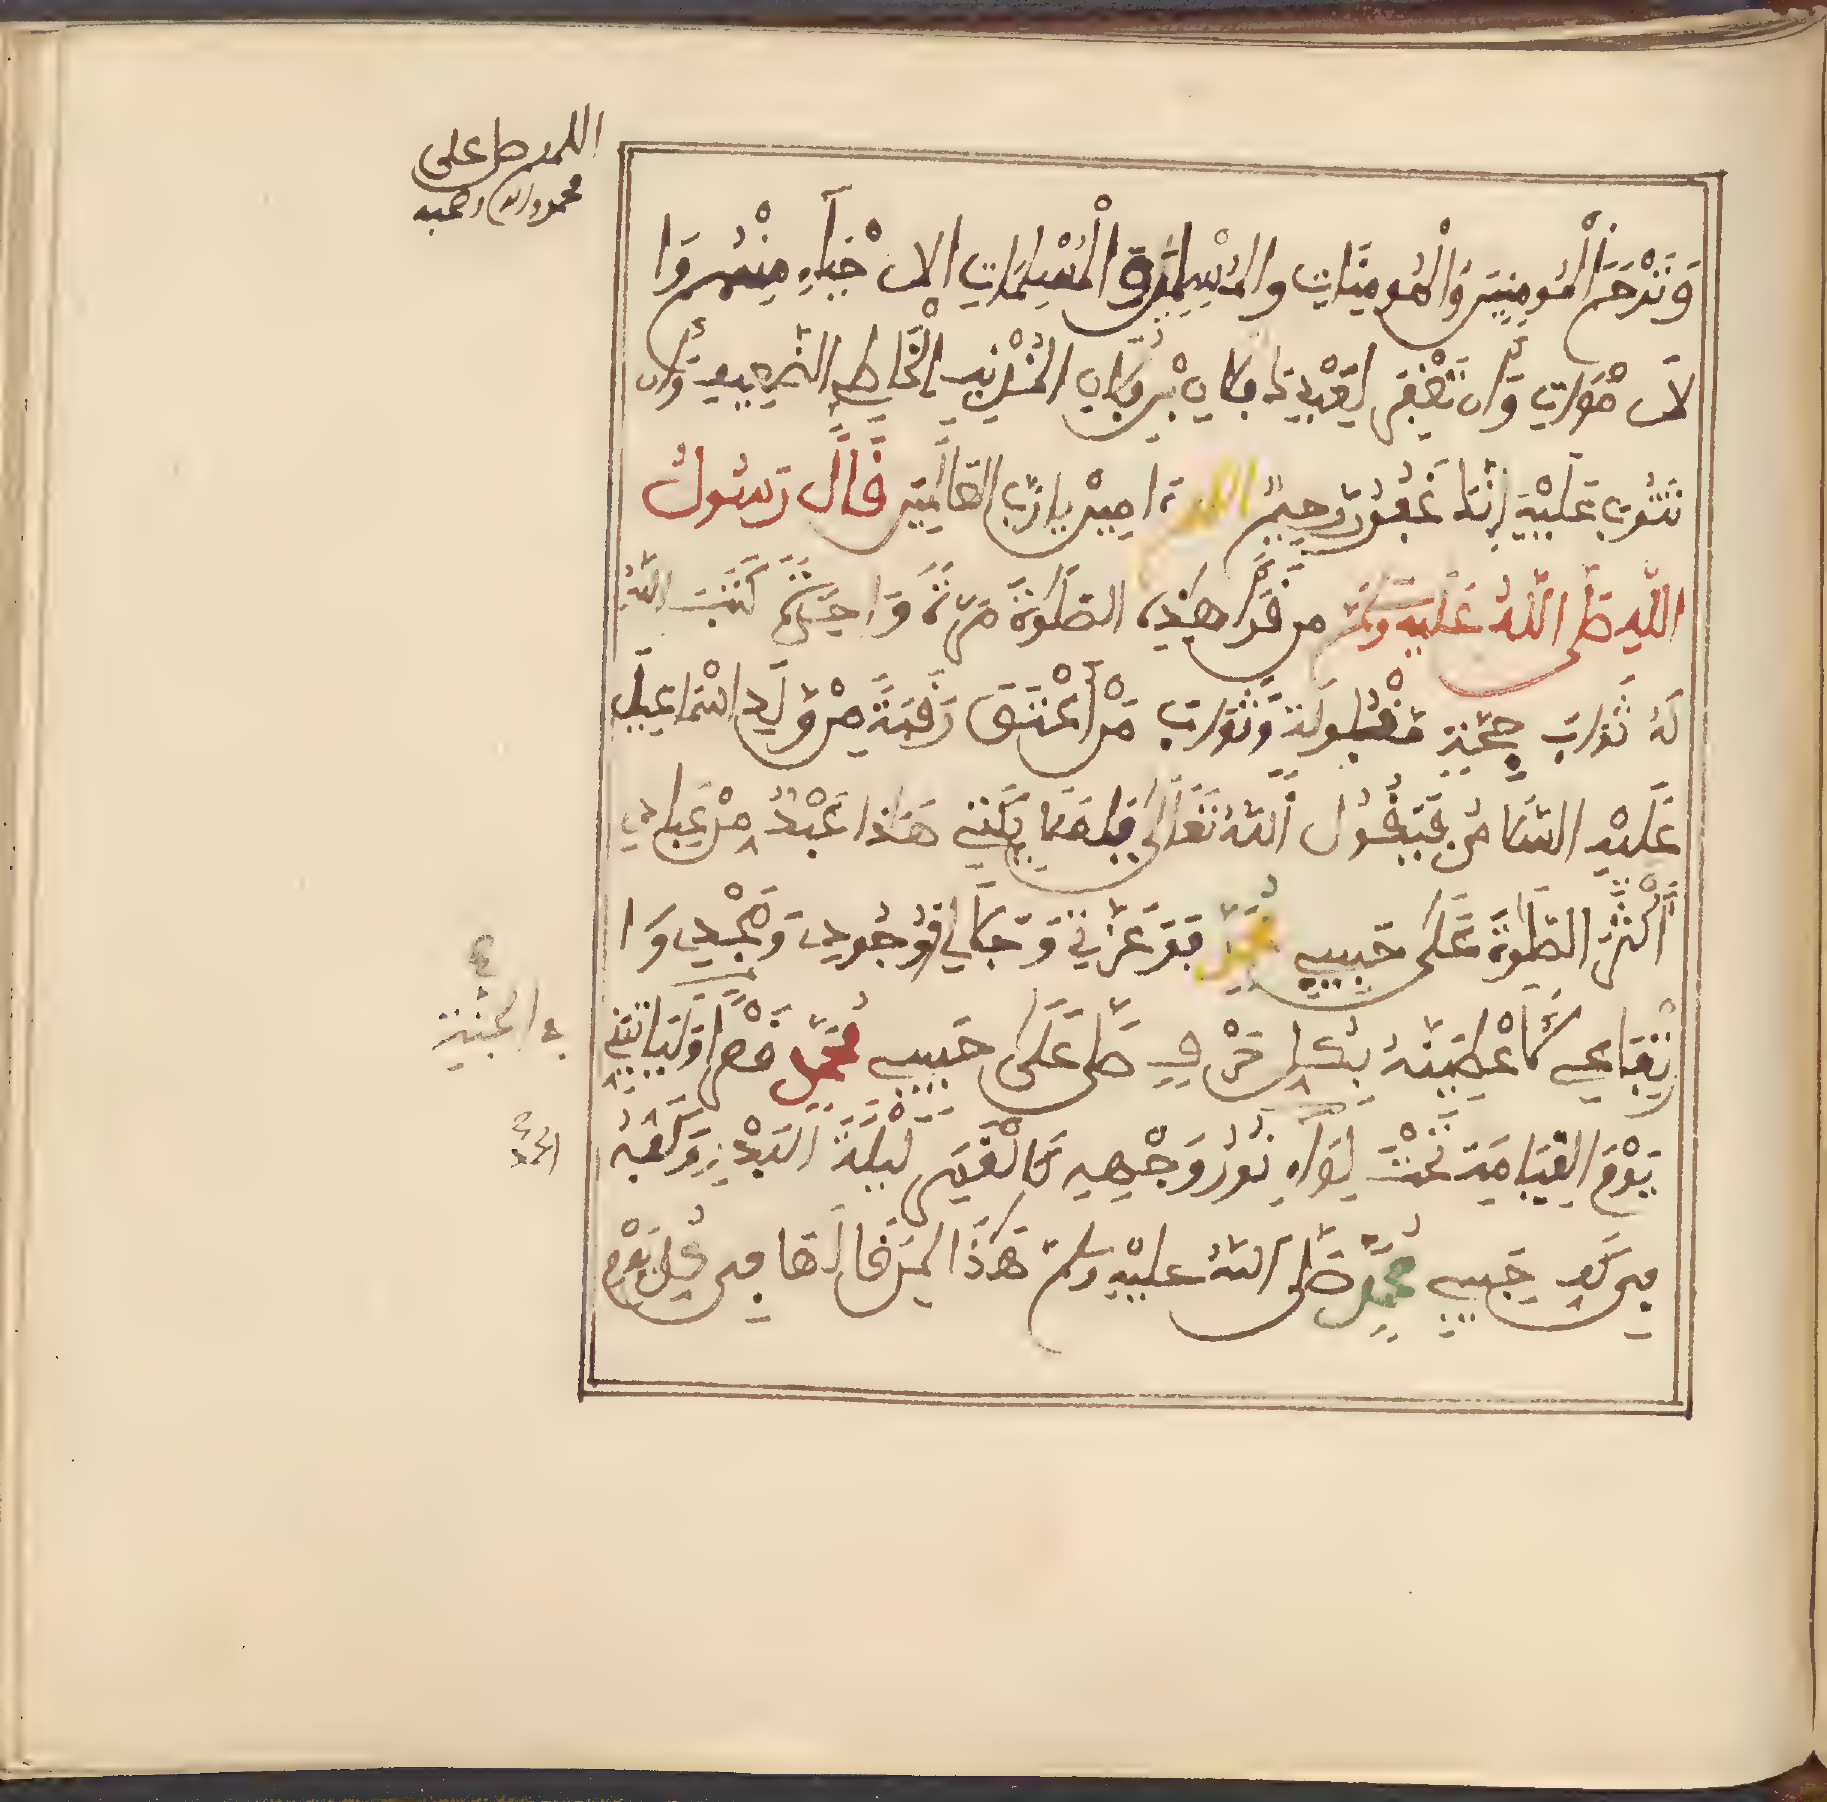 اللهم صل على
محمد واله وصحبه
وَتَرْحَمَ الْمُومِنِينَ وَالْمُومِنَاتِ وَالْمُسْلِمِينَ وَالْمُسْلِمَاتِ الاحْيَاءِ مِنْهُمْ وَا
لامْوَاتِ وَأَن تَغْفِرَ لِعَبْدِكَ فلان بْنِ فلان الْمُذْنِبِ الْخَاطِئِ الضَّعِيفِ وَأَن
تَتُوبَ عَلَيْهِ إِنَّكَ غَفُورٌ رَّحِيمٌ اللهم ءَامِينْ يَا رَبَّ الْعَالَمِينَ قَالَ رَسُولُ
اللَّهِ صَلَّى اللَّهُ عَلَيْهِ وَسَلَّمَ مَن قَرَأَ هَذِهِ الصَّلَوٰةَ مَرَّةً وَاحِدَةً كَتَبَ اللَّهُ
لَهُ ثَوَابَ حَجَّةٍ مَقْبُولَةٍ وَثَوَابَ مَنْ أَعْتَقَ رَقَبَةً مِنْ وَلَدِ اسْمَاعِيلَ
عَلَيْهِ السَّلَامُ فَيَقُولُ اللَّهُ تَعَالَى يَا مَلَائِكَتِي هَذَا عَبْدٌ مِنْ عِبَادِي
أَكْثَرَ الصَّلَوٰةَ عَلَى حَبِيبِي مُحَمَّدٍ فَوَعِزَّتِي وَجَلَالِي وَجُودِي وَمَجْدِي وَا
رْتِفَاعِي لَأُعْطِيَنَّهُ بِكُلِّ حَرْفٍ صَلَّى عَلَى حَبِيبِي مُحَمَّدٍ قَصْرًا وَلَيَاتِيَنِّي
في الجنة
يَوْمَ الْقِيَامَةِ تَحْتَ لِوَاءِ نُورُ وَجْهِهِ كَالْقَمَرِ لَيْلَةَ الْبَدْرِ وَكَفُّهُ
الحمد
فِي كَفِّ حَبِيبِي مُحَمَّدٍ صَلَّى اللَّهُ عَلَيْهِ وَسَلَّمَ هَذَا لِمَن قَالَهَا فِي كُلِّ يَوْمِ